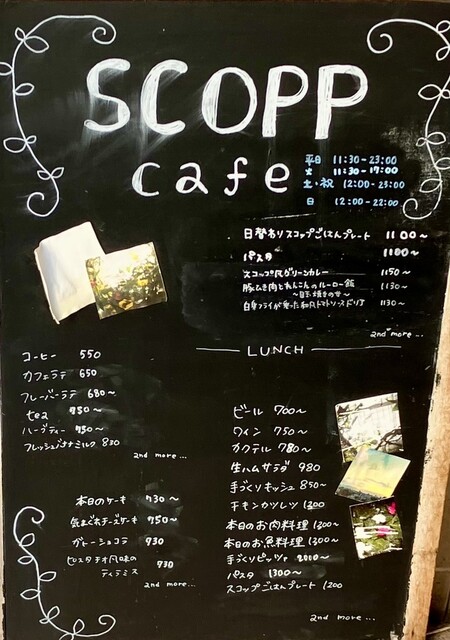 SCOPP
cafe
平日 11:30-23:00
火 11:30-17:00
土・祝 12:00-23:00
日 12:00-22:00
日替わりスコップごはんプレート 1100〜
パスタ 1100〜
スコップ風グリーンカレー 1150〜
豚ひき肉とれんこんのルーロー飯 1130〜
〜目玉焼きのせ〜
白身フライが乗った和風トマトソースドリア 1130〜
and more...
LUNCH
コーヒー 550
カフェラテ 650
フレーバーラテ 680〜
tea 750〜
ハーブティー 750〜
フレッシュバナナミルク 830
and more...
本日のケーキ 730〜
気まぐれチーズケーキ 750〜
ガトーショコラ 730
ピスタチオ風味の
ティラミス 730
and more...
ビール 700〜
ワイン 750〜
カクテル 780〜
生ハムサラダ 980
手づくりキッシュ 850〜
チキンカツレツ 1200
本日のお肉料理 1300〜
本日のお魚料理 1300〜
手づくりピッツァ 2000〜
パスタ 1300〜
スコップごはんプレート 1200
and more...